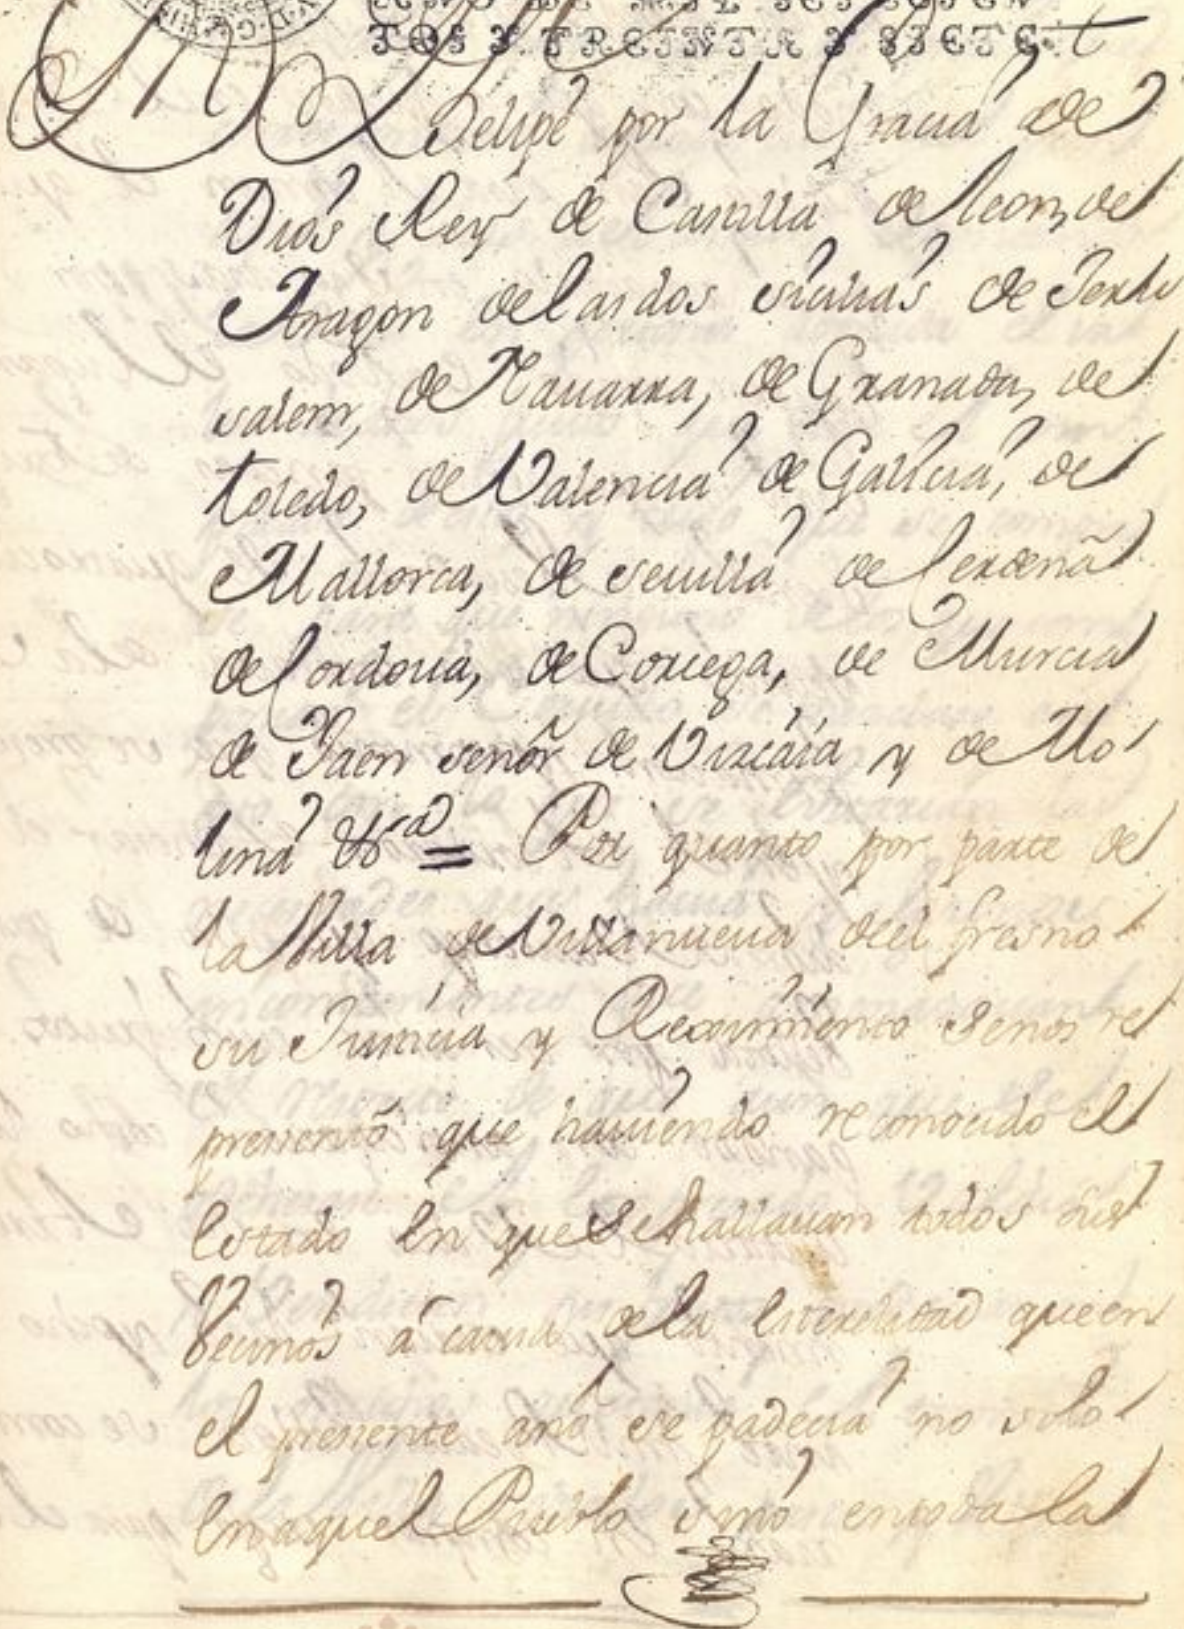 AÑO DE MIL SETECIEN
TOS Y TREINTA Y SIETE.
Phelipe por la Gracia de
Dios Rey de Castilla de leon, de
Aragon de las dos sicilias de Jeru
salem, de Nauarra, de Granada, de
toledo, de Valencia de Galicia, de
Mallorca, de seuilla de Cerdeña
de Cordoua, de Corcega, de Murcia
de Jaen señor de Vizcaia y de Mo
lina &ra = Por quanto por parte de
la Villa de Villanueua del fresno
su Justicia y Reximiento se nos re
pressentó que hauiendo reconocido el
estado en que se hallauan todos sus
Vecinos á causa de la esterelidad que en
el pressente año se padecia no solo
en aquel Pueblo sino en toda la